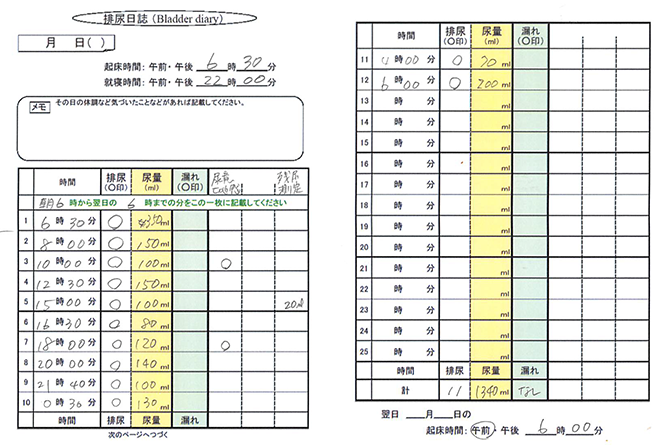 排尿日誌 (Bladder diary)
月 日( )
起床時間: 午前・午後 6 時 30 分
就寝時間: 午前・午後 22 時 00 分
メモ その日の体調など気づいたことなどがあれば記載してください。
時間 排尿 (○印) 尿量 (ml) 漏れ (○印) 残尿測定
朝 6 時から翌日の 6 時までの分をこの一枚に記載してください
1 6 時 30 分 ○ 350 ml
2 8 時 00 分 ○ 150 ml
3 10 時 00 分 ○ 100 ml ○
4 12 時 30 分 ○ 150 ml
5 15 時 00 分 ○ 100 ml 20ml
6 16 時 30 分 ○ 80 ml
7 18 時 00 分 ○ 120 ml ○
8 20 時 00 分 ○ 140 ml
9 21 時 40 分 ○ 100 ml
10 0 時 30 分 ○ 130 ml
時間 排尿 尿量 漏れ
次のページへつづく
時間 排尿 (○印) 尿量 (ml) 漏れ (○印)
11 4 時 00 分 ○ 20 ml
12 6 時 00 分 ○ 200 ml
13 時 分 ml
14 時 分 ml
15 時 分 ml
16 時 分 ml
17 時 分 ml
18 時 分 ml
19 時 分 ml
20 時 分 ml
21 時 分 ml
22 時 分 ml
23 時 分 ml
24 時 分 ml
25 時 分 ml
時間 排尿 尿量 漏れ
計 11 1340 ml なし
翌日 月 日の
起床時間: 午前・午後 6 時 00 分